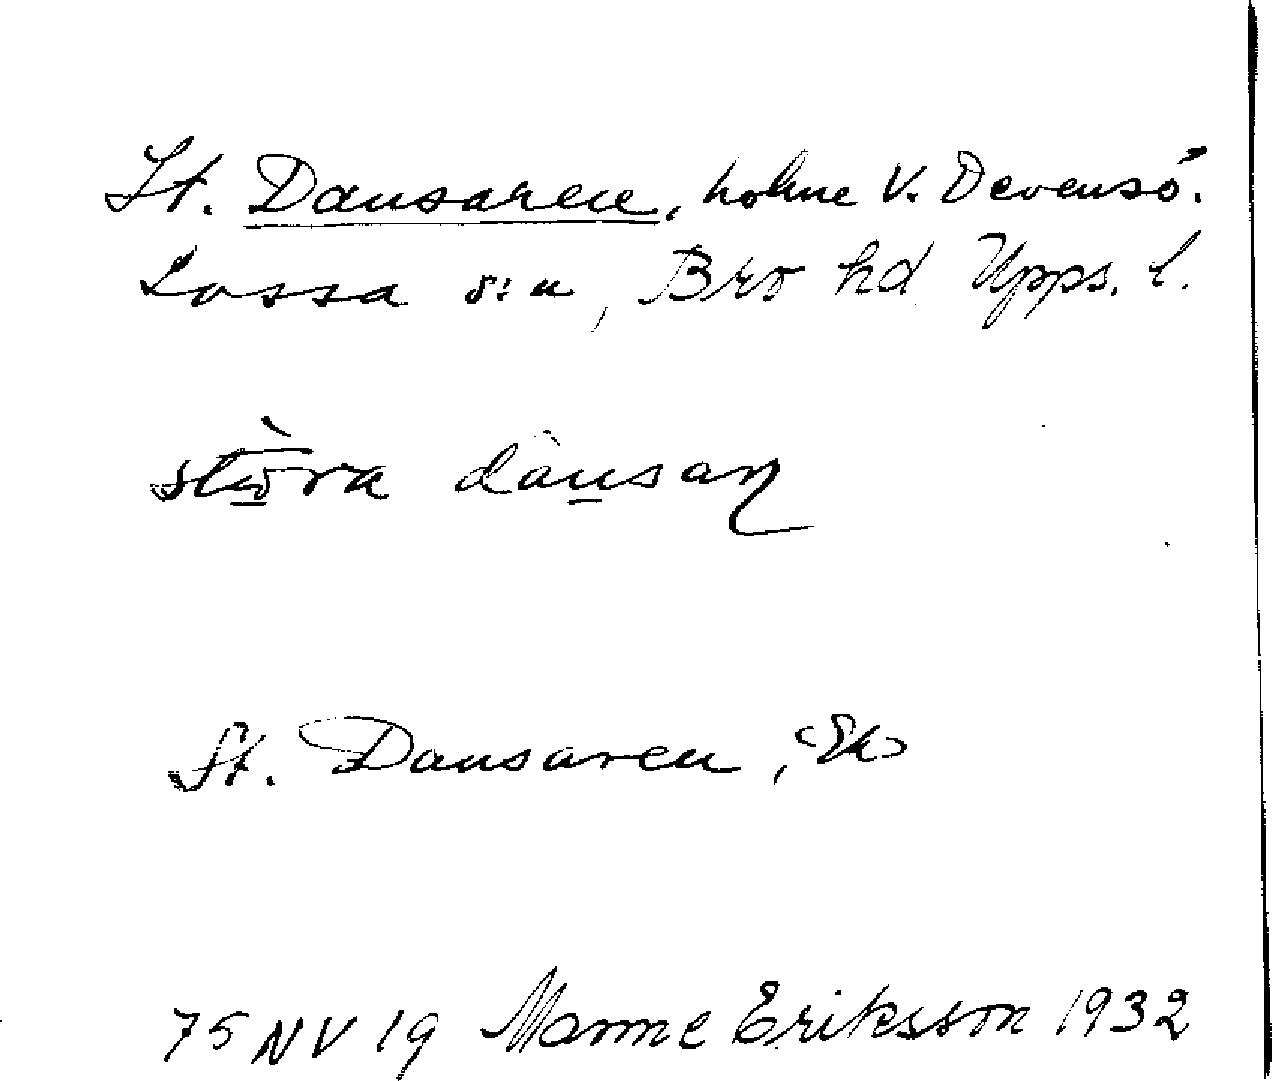 St. Dansaren, holme V. Devensö.
Lossa s:n, Bro hd Upps. l.
stòra dànsaɳ
St. Dansaren, Ek
75 NV 19 Manne Eriksson 1932